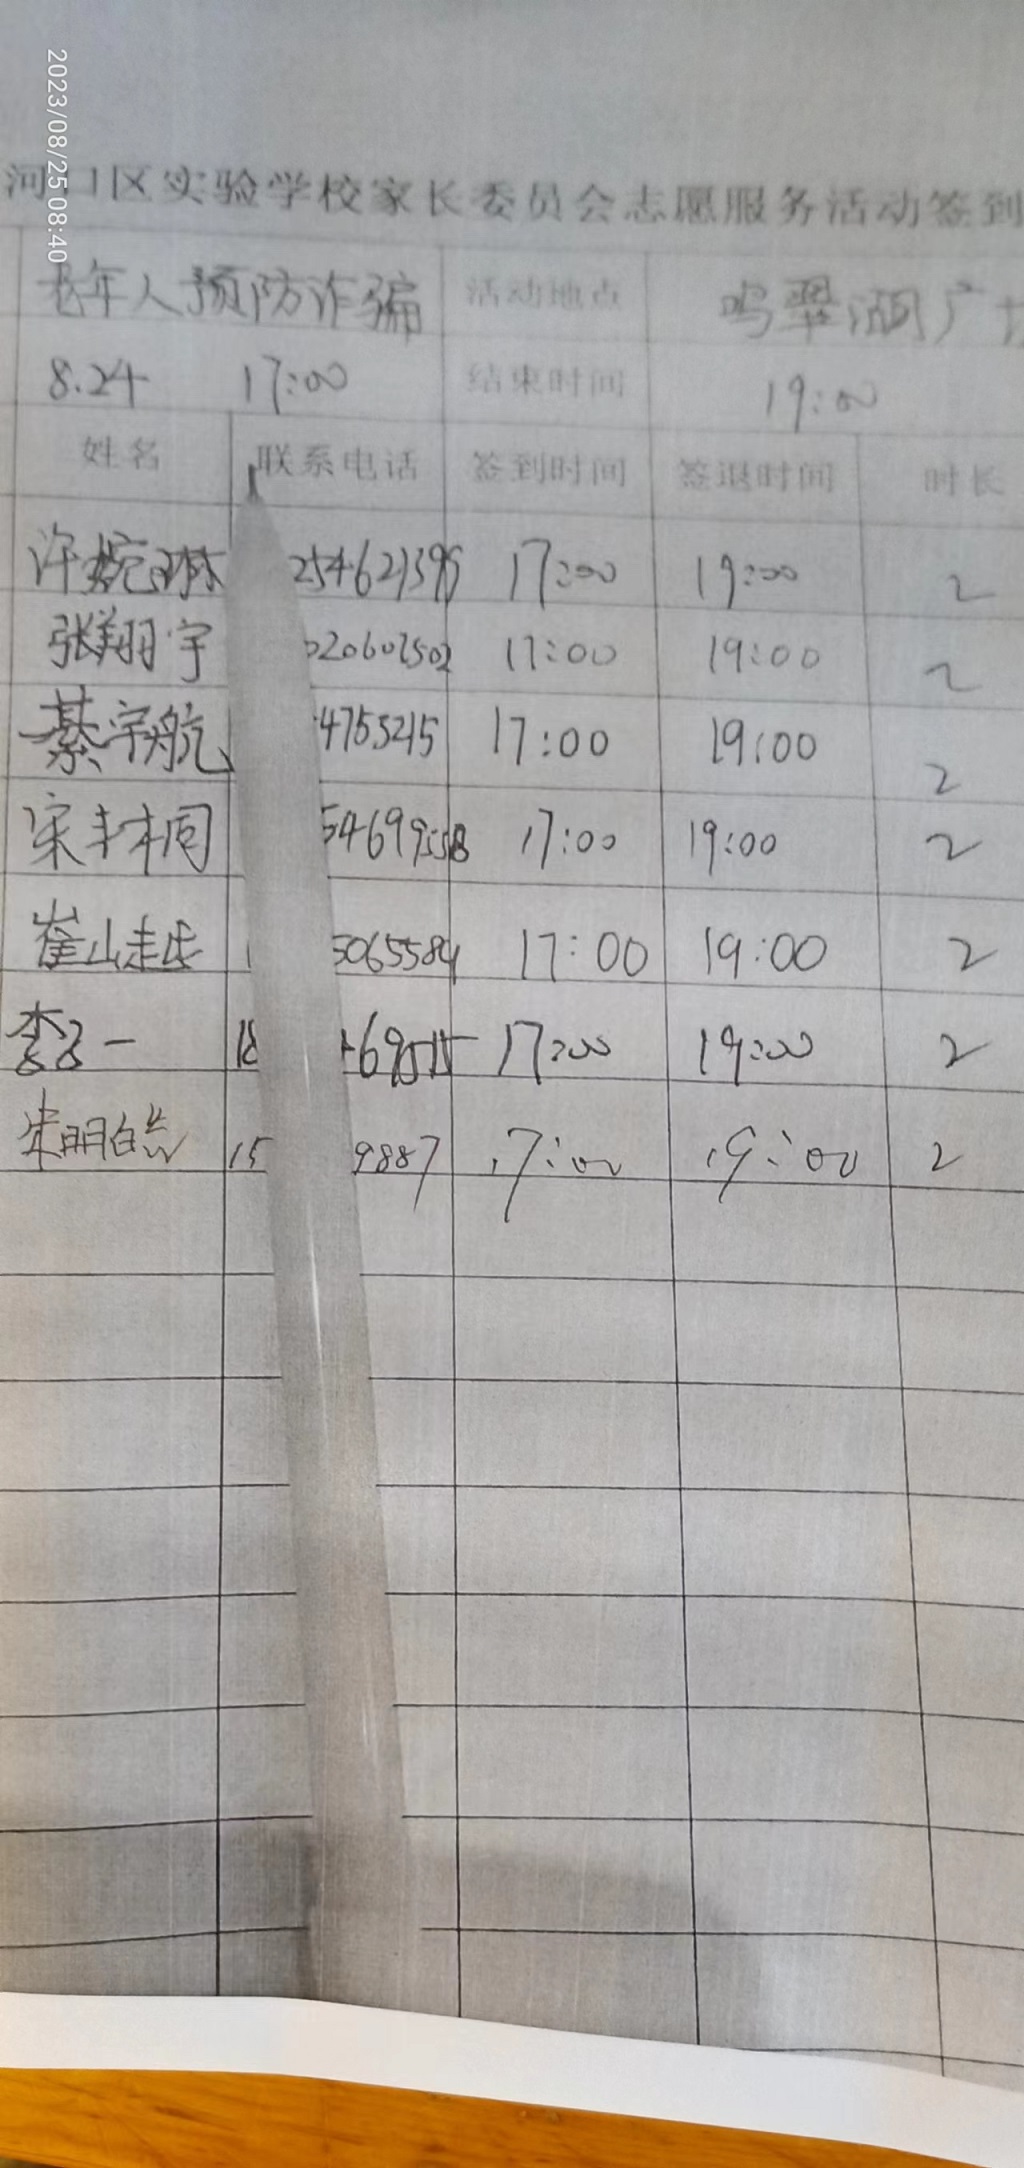 2023/08/25 08:40
河口区实验学校家长委员会志愿服务活动签到
老年人预防诈骗 活动地点 鸣翠湖广
8.24 17:00 结束时间 19:00
姓名 联系电话 签到时间 签退时间 时长
许婉琳 17:00 19:00 2
张翔宇 17:00 19:00 2
綦宇航 4755215 17:00 19:00 2
宋丰桐 17:00 19:00 2
崔山 5065584 17:00 19:00 2
李子一 18 17:00 19:00 2
朱明皓 15 9887 17:00 19:00 2